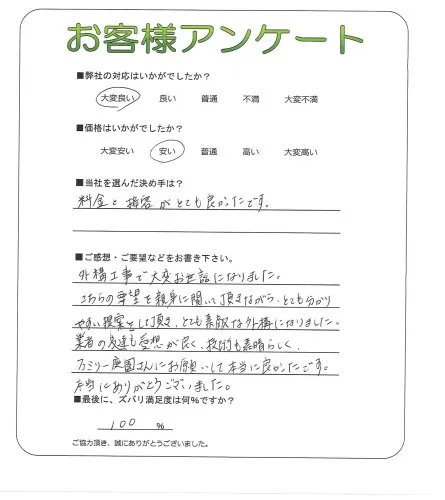 お客様アンケート
■弊社の対応はいかがでしたか?
大変良い 良い 普通 不満 大変不満
■価格はいかがでしたか?
大変安い 安い 普通 高い 大変高い
■当社を選んだ決め手は?
料金と接客がとても良かったです。
■ご感想・ご要望などをお書き下さい。
外構工事で大変お世話になりました。
こちらの要望を親身に聞いて頂きながら、とても分かり
やすい提案をして頂き、とても素敵な外構になりました。
業者の友達も愛想が良く、技術も素晴らしく、
ファミリー庭園さんにお願いして本当に良かったです。
本当にありがとうございました。
■最後に、ズバリ満足度は何%ですか?
100 %
ご協力頂き、誠にありがとうございました。